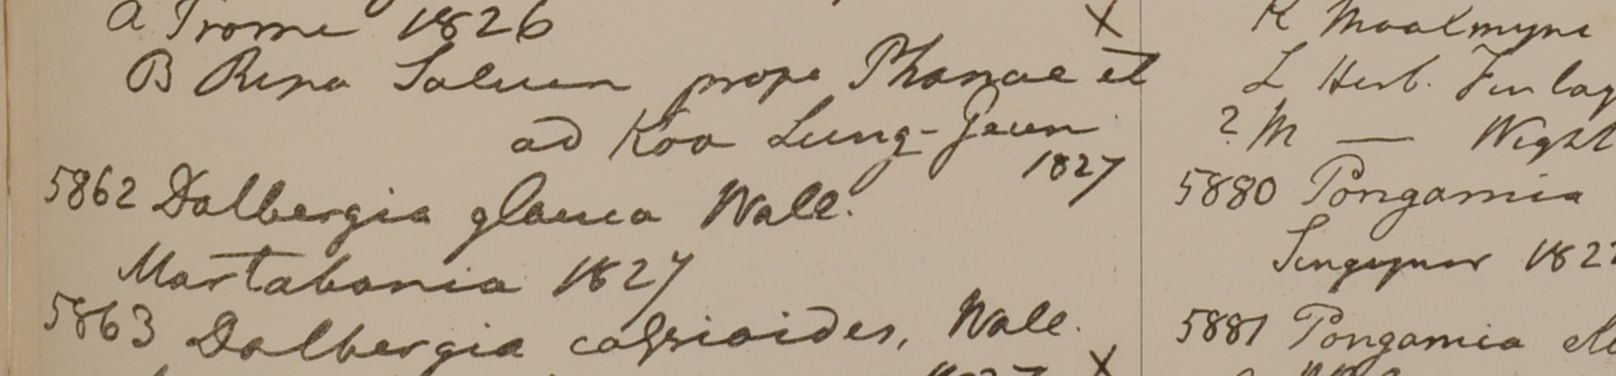 a Prome 1826
B Ripa Saluen prope Phanoe et
ad Koa Lung-Geun
1827
5862 Dalbergia glauca Wall.
Martabania 1827
5863 Dalbergia cassioides, Wall.
K Moalmyne
L Herb. Finlay
? M — Wight
5880 Pongamia
Singapur 182
5881 Pongamia